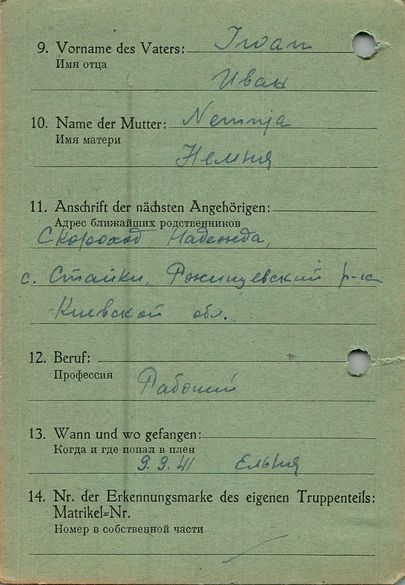 9. Vorname des Vaters: Iwan
Имя отца
Иван
10. Name der Mutter: Nemnja
Имя матери
Немния
11. Anschrift der nächsten Angehörigen:
Адрес ближайших родственников
Скороход Надежда,
с. Стайки, Ржищевский р-н
Киевской обл.
12. Beruf:
Профессия
Рабочий
13. Wann und wo gefangen:
Когда и где попал в плен
9.9.41 Ельня
14. Nr. der Erkennungsmarke des eigenen Truppenteils:
Matrikel=Nr.
Номер в собственной части